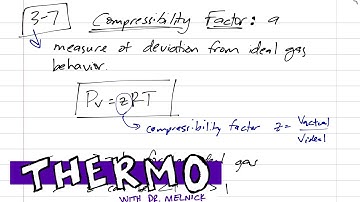 3-7 Compressibility Factor: a
measure of deviation from ideal gas
behavior.
Pv = zRT
compressibility factor z = Vactual / Videal
gas
THERMO
> 1
WITH DR. MELNICK